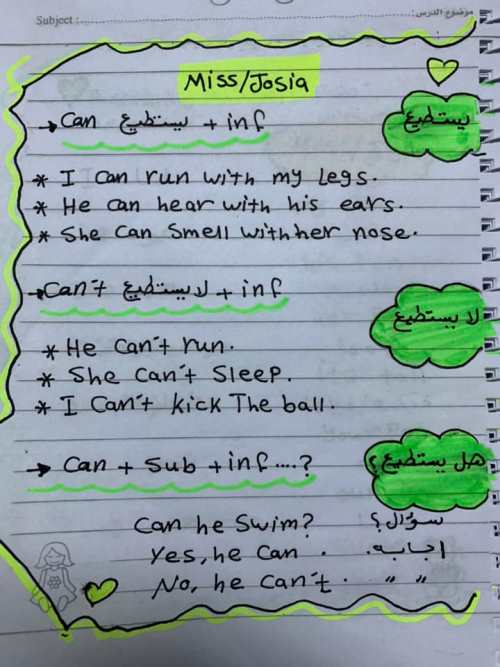 Subject : موضوع الدرس :
Miss/Josia
→ Can يستطيع + inf
يستطيع
* I can run with my legs.
* He can hear with his ears.
* She can smell with her nose.
→ Can't لا يستطيع + inf
لا يستطيع
* He can't run.
* She can't sleep.
* I can't kick The ball.
→ Can + Sub + inf ....?
هل يستطيع؟
Can he swim? سؤال؟
Yes, he can . اجابه.
No, he can't . " "